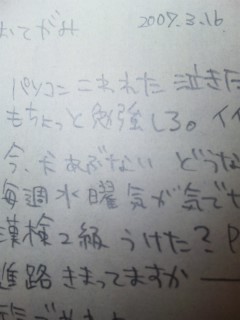 おてがみ 2009.3.16.
パソコン これれた 泣きた
もちょっと勉強しろ。イイ
今、だあぶない どうな
毎週水曜気が気でな
漢検2級 うけた? P
進路きまってますか―